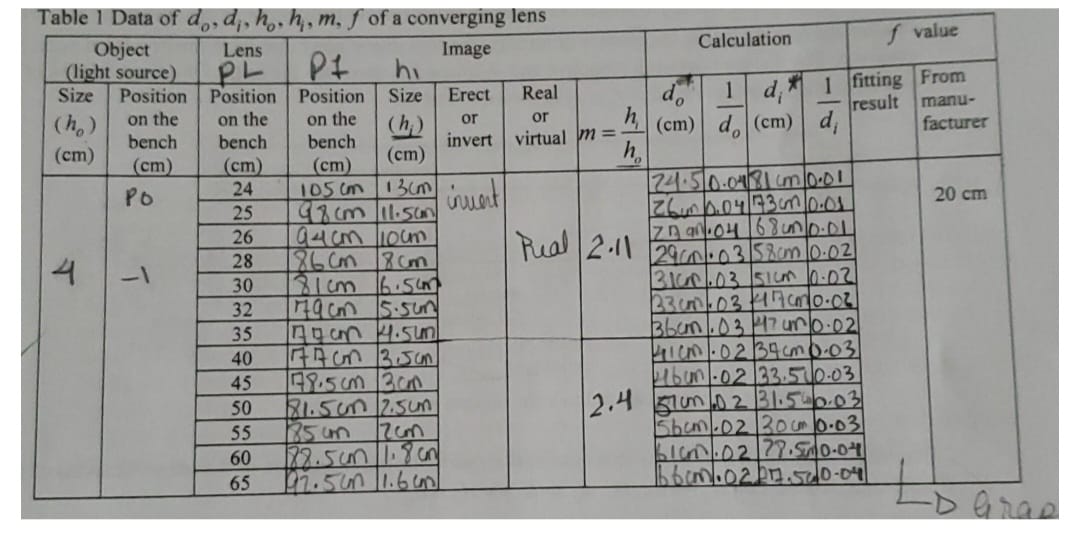 Table 1 Data of dₒ, dᵢ, hₒ, hᵢ, m, f of a converging lens
Object (light source) Lens PL Image PI hi Calculation f value
Size (hₒ) (cm) Position on the bench (cm) Position on the bench (cm) Position on the bench (cm) Size (hᵢ) (cm) Erect or invert Real or virtual m = hᵢ/hₒ dₒ* (cm) 1/dₒ dᵢ* (cm) 1/dᵢ fitting result From manu-facturer
4 PO -1 invert Real 2.11 2.4 20 cm
24 105 cm 13cm 24.5 0.04 81 cm 0.01
25 98 cm 11.5cm 26cm 0.04 73cm 0.01
26 94cm 10cm .04 68cm 0.01
28 86cm 8cm 29cm .03 58cm 0.02
30 81cm 6.5cm 31cm .03 51cm 0.02
32 79cm 5.5cm 33cm .03 47cm 0.02
35 77cm 4.5cm 36cm .03 0.02
40 77cm 3.5cm 41cm .02 0.03
45 78.5cm 3cm 46cm .02 33.5 0.03
50 81.5cm 2.5cm 51cm .02 31.5 0.03
55 85cm 2cm 56cm .02 30cm 0.03
60 88.5cm 1.8cm 61cm .02 0.04
65 1.6cm 66cm .02 27.5 0.04